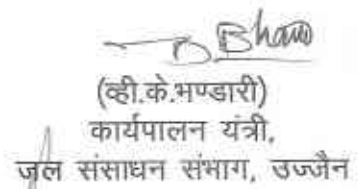 (व्ही.के.भण्डारी)
कार्यपालन यंत्री,
जल संसाधन संभाग, उज्जैन